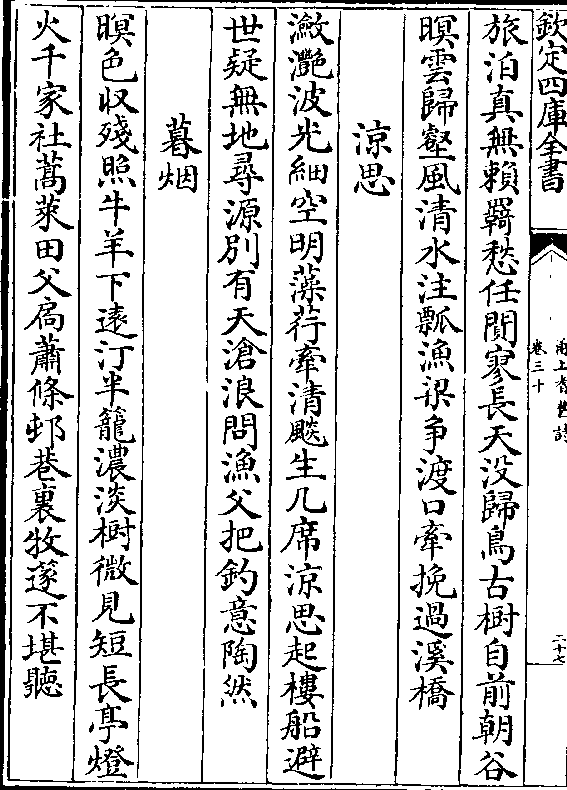 欽定四庫全書
甬上耆舊詩
卷三十
二十七
旅泊真無賴羇愁任閴寥長天没歸鳥古樹自前朝谷
暝雲歸壑風清水注瓢漁梁争渡口牽挽過溪橋
涼思
瀲灔波光細空明藻荇牽清颷生几席涼思起樓船避
世疑無地尋源別有天滄浪問漁父把釣意陶然
暮烟
暝色収殘照牛羊下遠汀半籠濃淡樹微見短長亭燈
火千家社蒿萊田父扃蕭條邨巷裏牧篴不堪聽